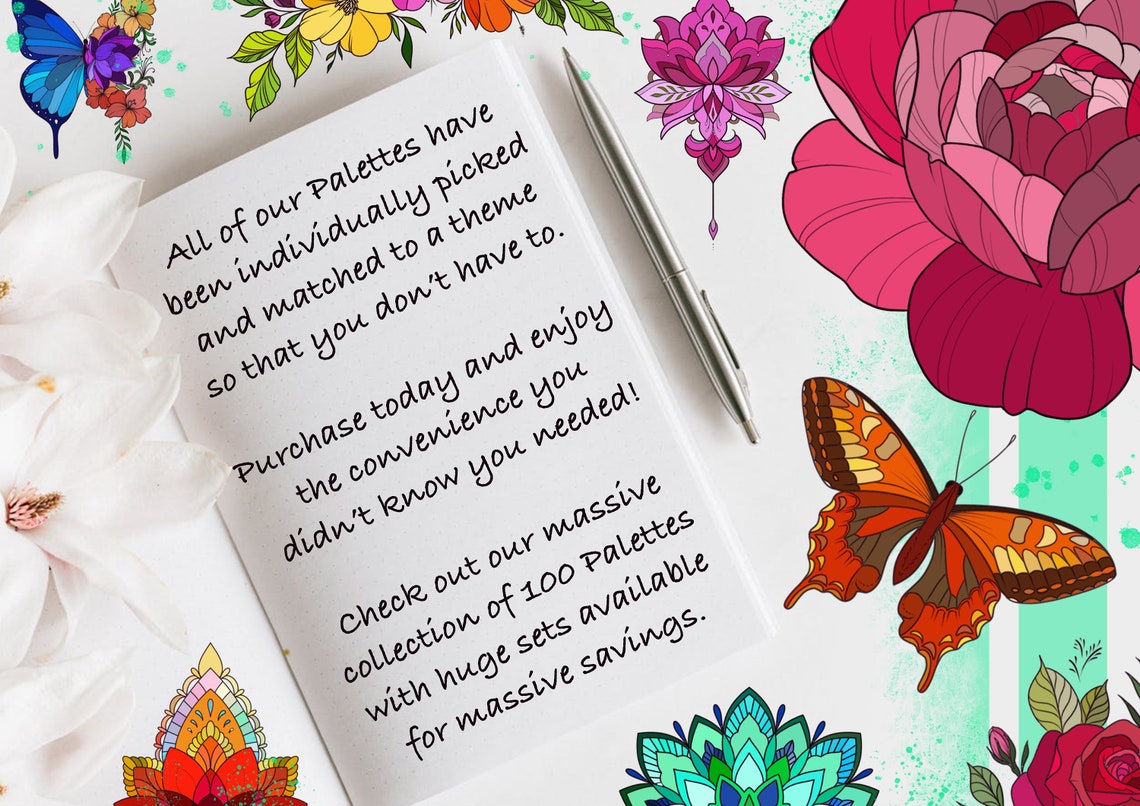 All of our Palettes have
been individually picked
and matched to a theme
so that you don't have to.
Purchase today and enjoy
the convenience you
didn't know you needed!
Check out our massive
collection of 100 Palettes
with huge sets available
for massive savings.